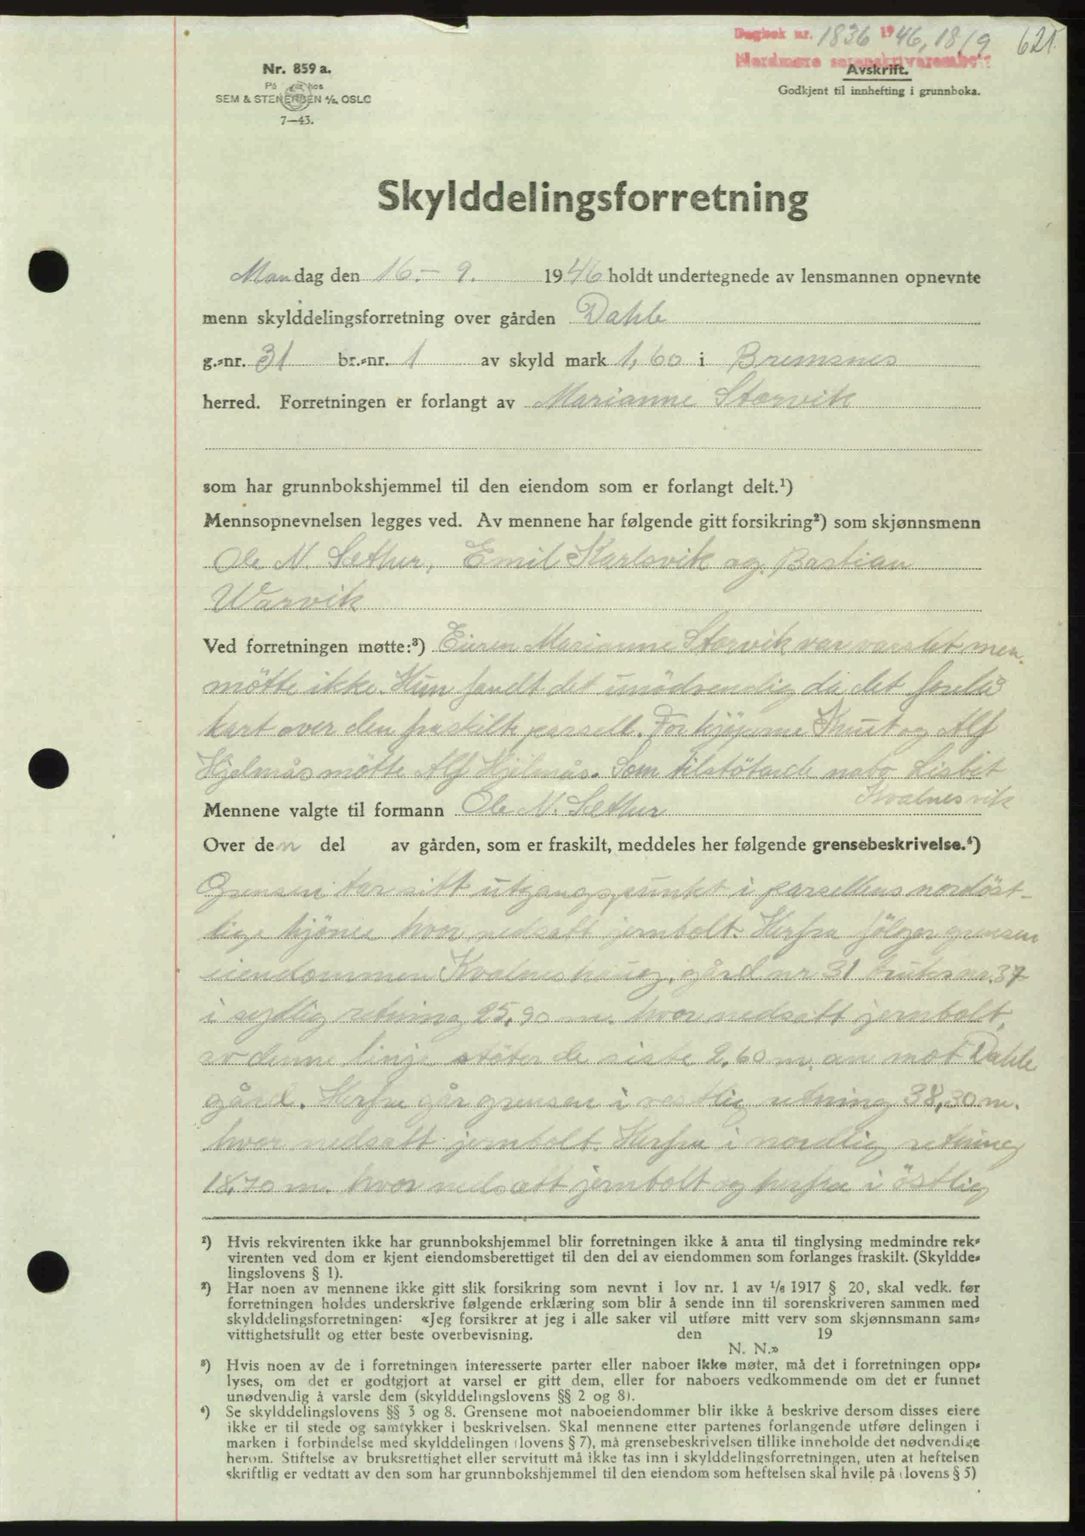 Dagbok nr. 1836 1946, 18/9 621
Nordmøre sorenskriverembete
Nr. 859 a.
SEM & STENERSEN A/S, OSLO
7—43.
Avskrift.
Godkjent til innhefting i grunnboka.
Skylddelingsforretning
Mandag den 16.- 9. 1946 holdt undertegnede av lensmannen opnevnte
menn skylddelingsforretning over gården Dahle
g.-nr. 31 br.-nr. 1 av skyld mark 1,60 i Bremsnes
herred. Forretningen er forlangt av Marianne Storvik
som har grunnbokshjemmel til den eiendom som er forlangt delt.¹)
Mennsopnevnelsen legges ved. Av mennene har følgende gitt forsikring²) som skjønnsmenn
Ole N. Sæther, Emil Karlsvik og Bastian
Warvik
Ved forretningen møtte:³) Eieren Marianne Storvik var varslet men
møtte ikke. Hun fandt det unödvendig da det forelå
kart over den fraskilte parsell. For kjøperne Knut og Alf
Hjelmås møtte Alf Hjelmås. Som tilstötende nabo Lisbet
Kvalnesvik
Mennene valgte til formann Ole N. Sæther
Over den del av gården, som er fraskilt, meddeles her følgende grensebeskrivelse.⁴)
Grensen tar sitt utgangspunkt i parsellens nordöst-
lige hjörne hvor nedsatt jernbolt. Herfra fölger grensen
eiendommen Kvalneshaug, gård nr 31 bruks nr. 37
i sydlig retning 25,90 m. hvor nedsatt jernbolt,
av denne linje stöter de siste 2,60 m. an mot Dahle
gård. Herfra går grensen i vestlig retning 38,30 m.
hvor nedsatt jernbolt. Herfra i nordlig retning
18,70 m. hvor nedsatt jernbolt og herfra i östlig
¹) Hvis rekvirenten ikke har grunnbokshjemmel blir forretningen ikke å anta til tinglysing medmindre rek-
virenten ved dom er kjent eiendomsberettiget til den del av eiendommen som forlanges fraskilt. (Skyldde-
lingslovens § 1).
²) Har noen av mennene ikke gitt slik forsikring som nevnt i lov nr. 1 av 1/6 1917 § 20, skal vedk. før
forretningen holdes underskrive følgende erklæring som blir å sende inn til sorenskriveren sammen med
skylddelingsforretningen: «Jeg forsikrer at jeg i alle saker vil utføre mitt verv som skjønnsmann sam-
vittighetsfullt og etter beste overbevisning. den 19
N. N.»
³) Hvis noen av de i forretningen interesserte parter eller naboer ikke møter, må det i forretningen opp-
lyses, om det er godtgjort at varsel er gitt dem, eller for naboers vedkommende om det er funnet
unødvendig å varsle dem (skylddelingslovens §§ 2 og 8).
⁴) Se skylddelingslovens §§ 3 og 8. Grensene mot naboeiendommer blir ikke å beskrive dersom disses eiere
ikke er til stede og samtykker i beskrivelsen. Skal mennene etter partenes forlangende utføre delingen i
marken i forbindelse med skylddelingen (lovens § 7), må grensebeskrivelsen tillike inneholde det nødvendige
herom. Stiftelse av bruksrettighet eller servitutt må ikke tas inn i skylddelingsforretningen, uten at heftelsen
skriftlig er vedtatt av den som har grunnbokshjemmel til den eiendom som heftelsen skal hvile på (lovens § 5)